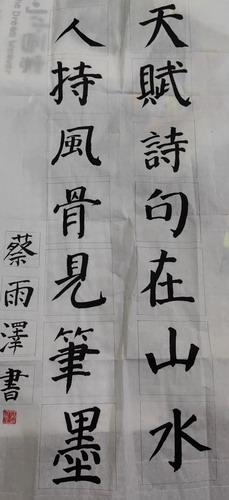 天賦詩句在山水
人持風骨見筆墨
蔡雨澤書